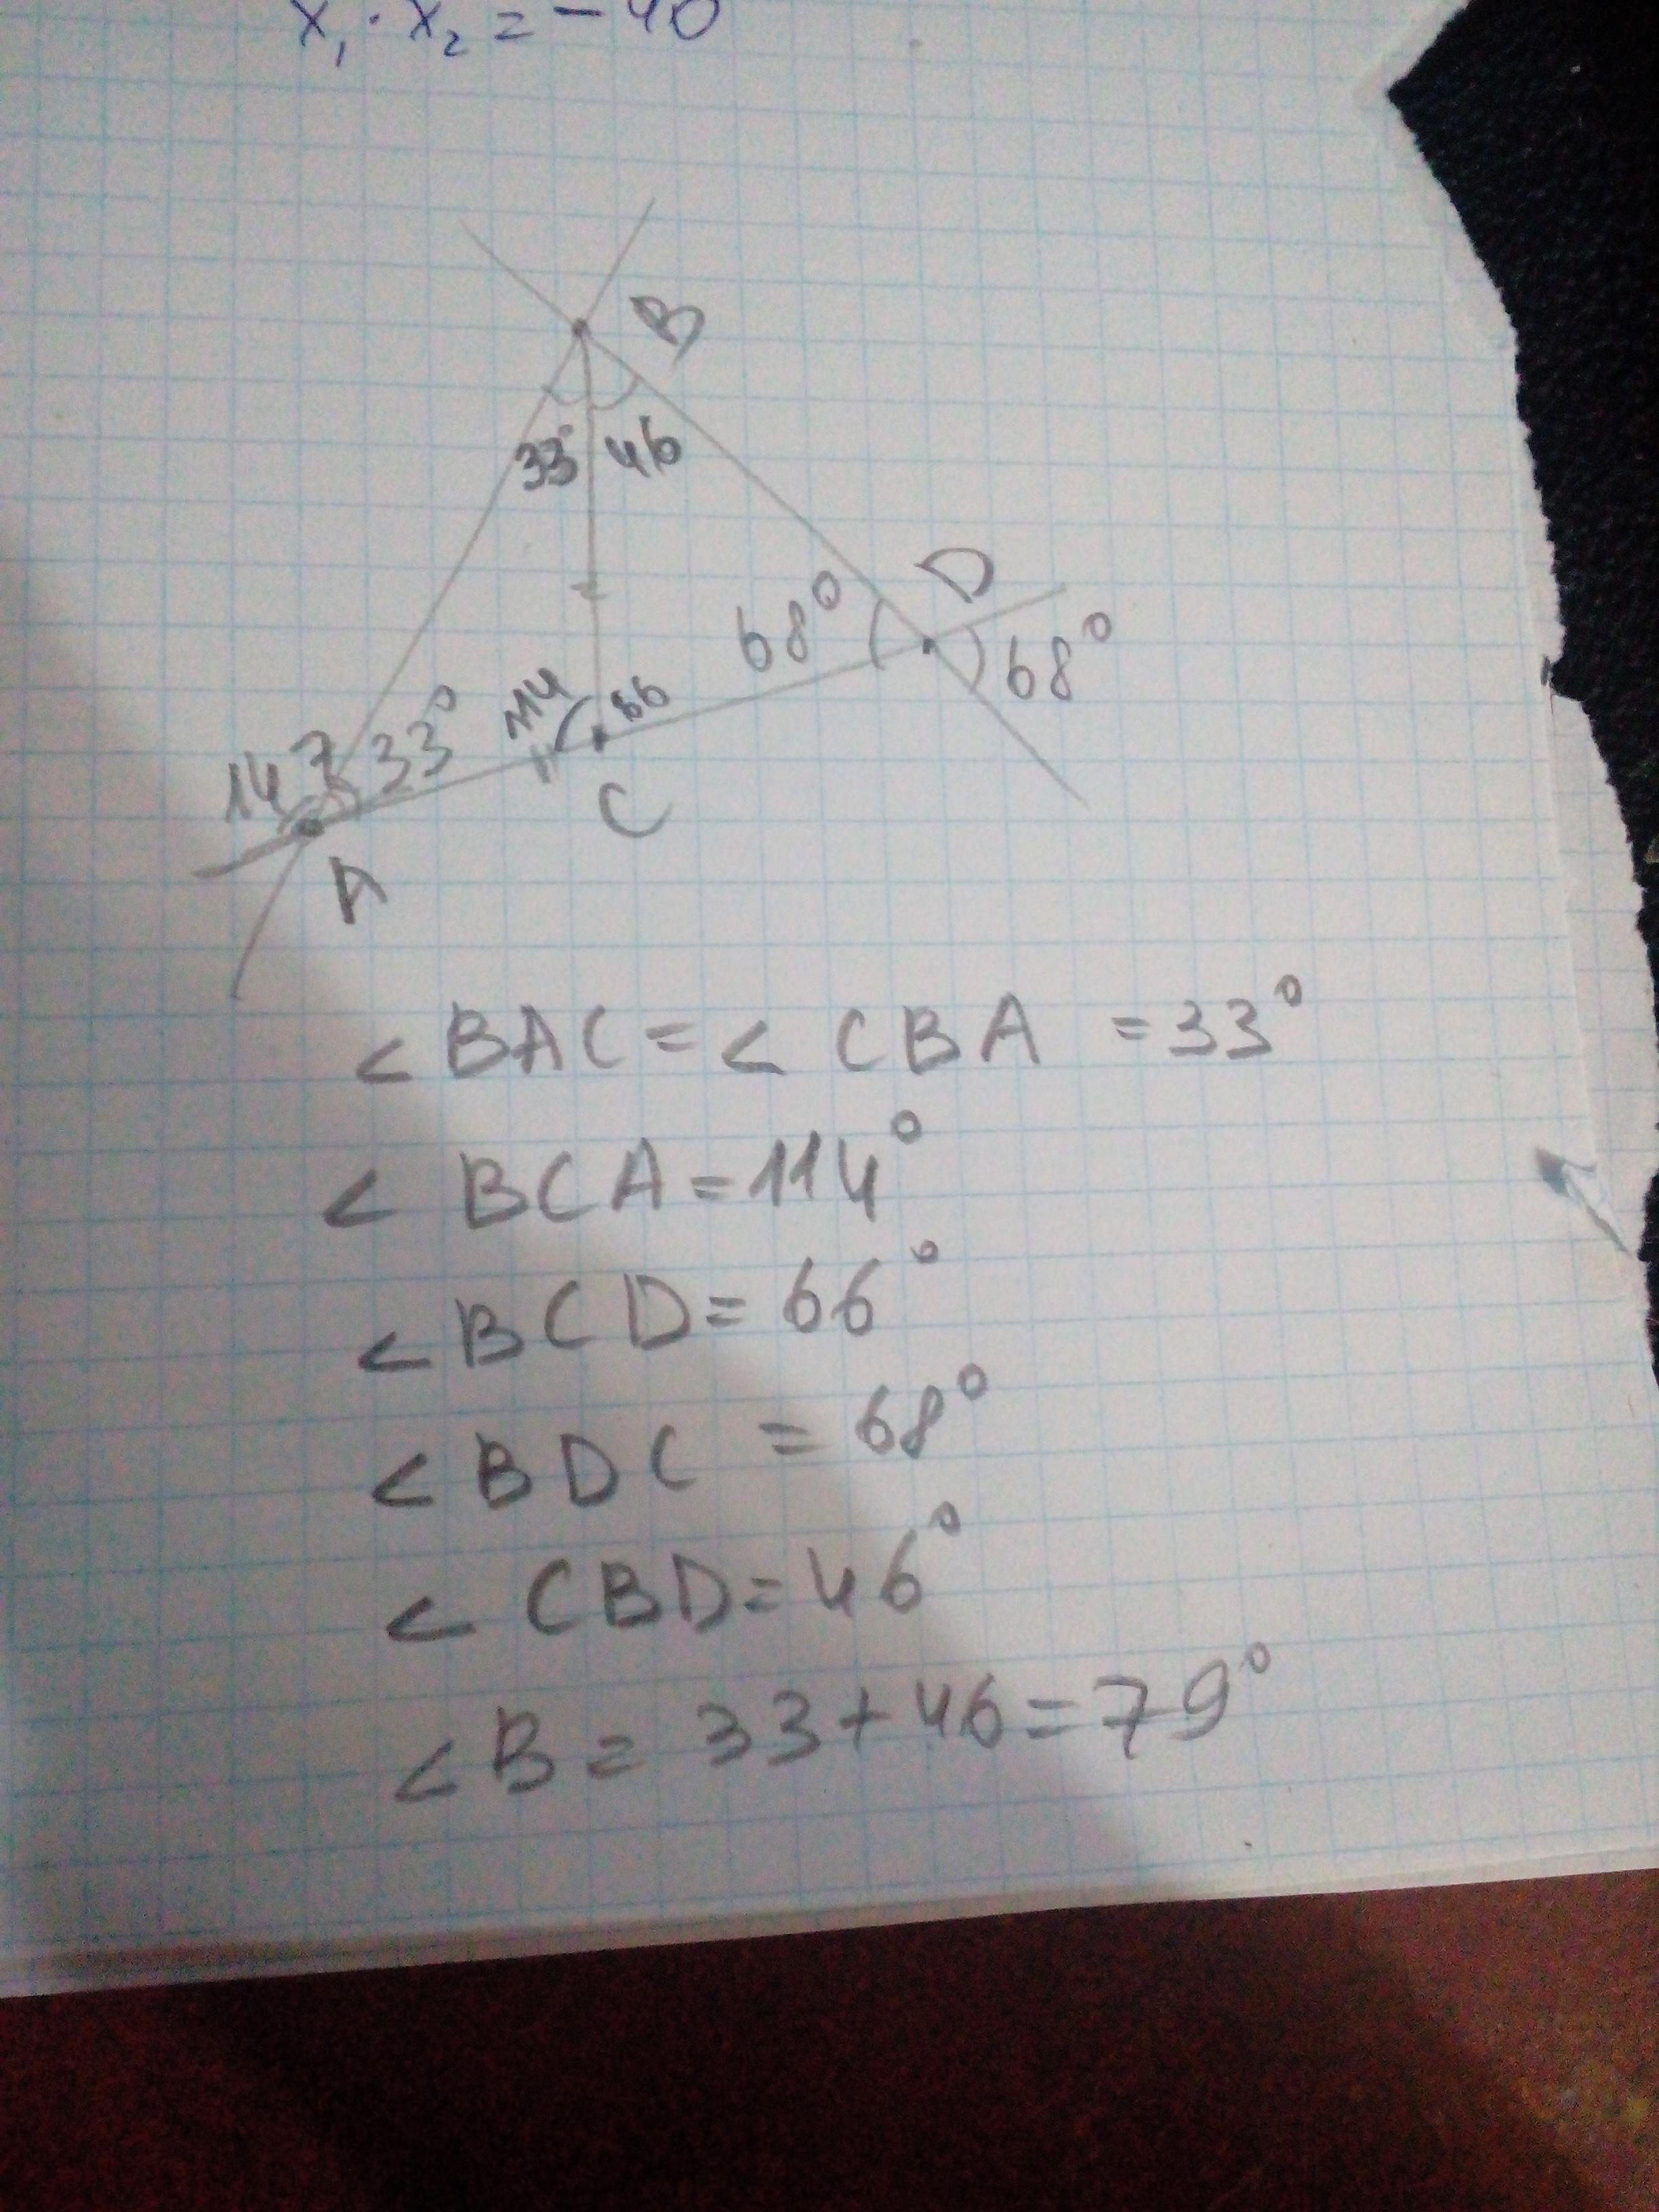 x₁ · x₂ = -40
B
33° 46
D
68°
68°
114 66
147 33°
C
A
< BAC = < CBA = 33°
< BCA = 114°
< BCD = 66°
< BDC = 68°
< CBD = 46°
< B = 33 + 46 = 79°